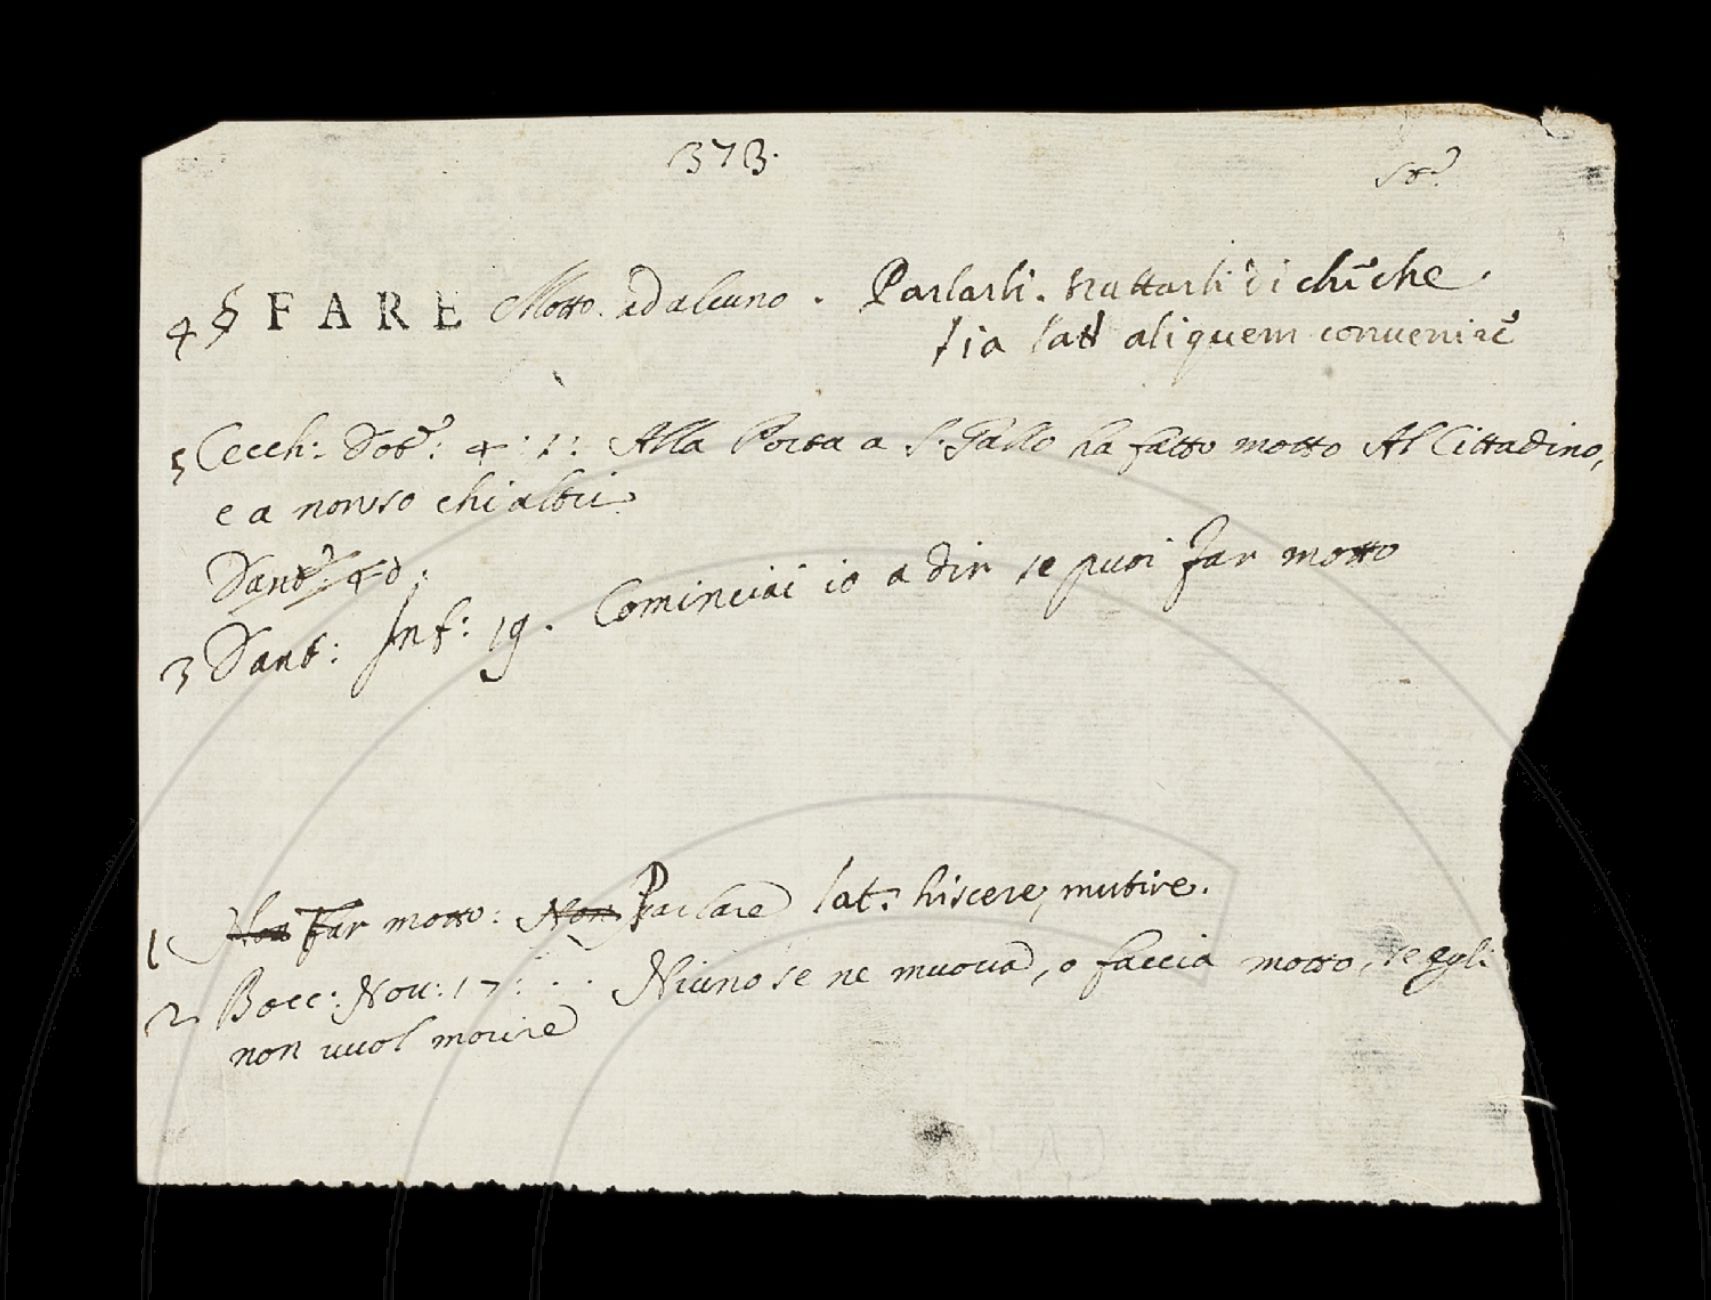 373.
4 § FARE Motto ad alcuno. Parlarli. trattarli di chi che
sia lat aliquem convenire
5 Cecch: Dot: 4: 1: Alla Porta a S. Gallo ha fatto motto Al Cittadino,
e a non so chi altri
Dant: 40:
3 Dant: Inf: 19. Cominciai io a dir se puoi far motto
1 Non Far motto: Non Parlare lat: hiscere, mutire.
2 Bocc: Nov: 17: . . Niuno se ne muova, o faccia motto, se egli
non vuol morire